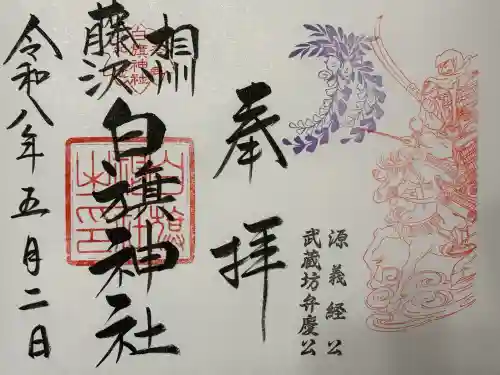 源義経公
武蔵坊弁慶公
奉拝
相州
藤沢
白旗神社
令和八年五月二日